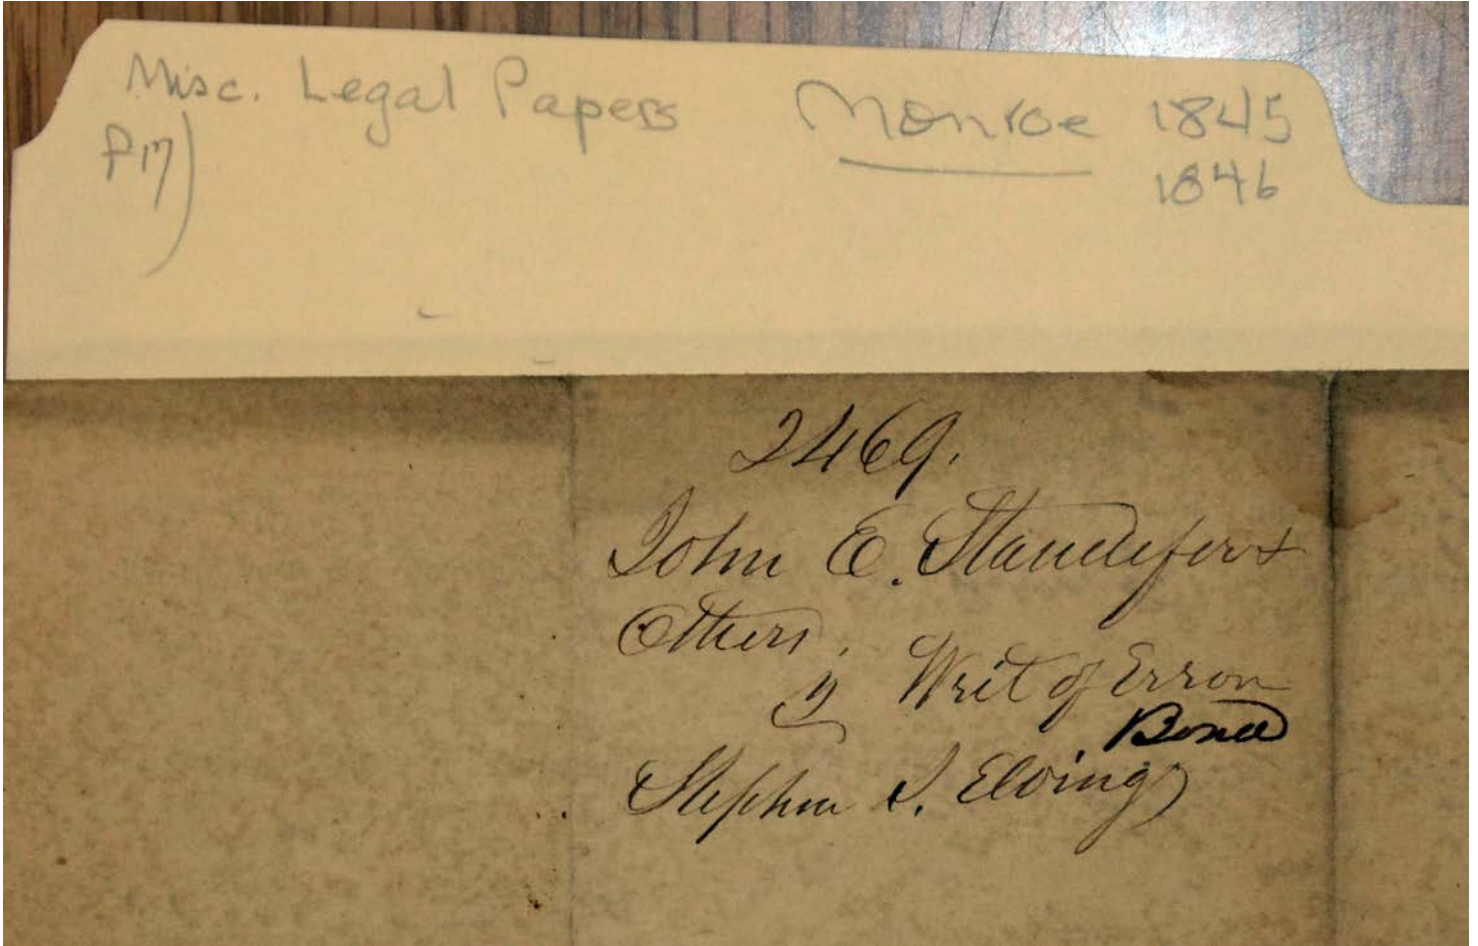 Misc. Legal Papers Monroe 1845
P17) 1846
2469.
John E. Standefer &
Others,
vs Writ of Error
Bond
Stephen S. Ewing